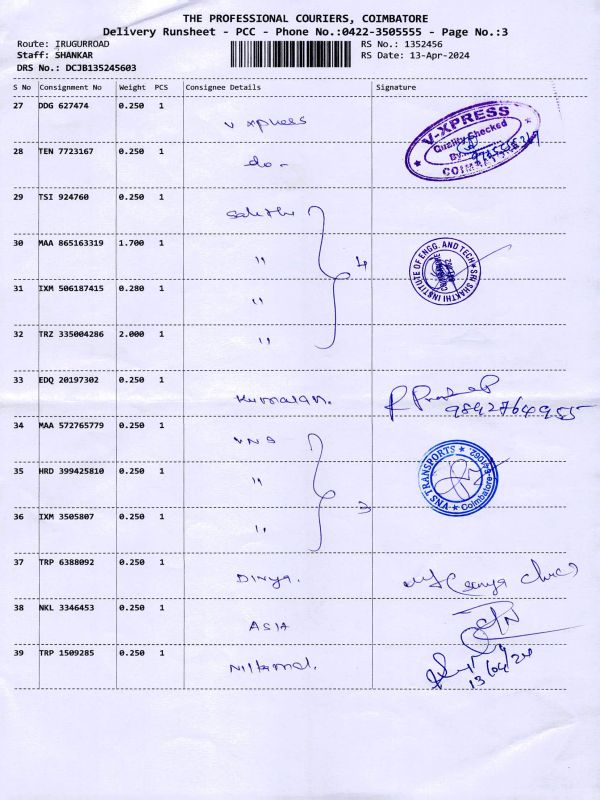 THE PROFESSIONAL COURIERS, COIMBATORE
Delivery Runsheet - PCC - Phone No.:0422-3505555 - Page No.:3
Route: IRUGURROAD RS No.: 1352456
Staff: SHANKAR RS Date: 13-Apr-2024
DRS No.: DCJB135245603
S No Consignment No Weight PCS Consignee Details Signature
27 DDG 627474 0.250 1
V xpress
V-XPRESS
Quality Checked
By:
COIMBATORE
28 TEN 7723167 0.250 1
do -
29 TSI 924760 0.250 1
Sakthi
30 MAA 865163319 1.700 1
" 4
SRI SHAKTHI INSTITUTE OF ENGG. AND TECH
31 IXM 506187415 0.280 1
"
32 TRZ 335004286 2.000 1
"
33 EDQ 20197302 0.250 1
Kumaran.
9842764955
34 MAA 572765779 0.250 1
VNS
VNS TRANSPORTS
Coimbatore
35 HRD 399425810 0.250 1
"
36 IXM 3505807 0.250 1
" 3
37 TRP 6388092 0.250 1
Divya.
38 NKL 3346453 0.250 1
ASIA
39 TRP 1509285 0.250 1
13/04/24